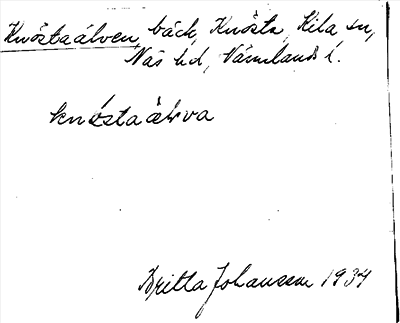 Knöstaälven, bäck, Knösta, Kila sn,
Näs hd, Värmlands l.
knöstaälva
Britta Johansson 1934